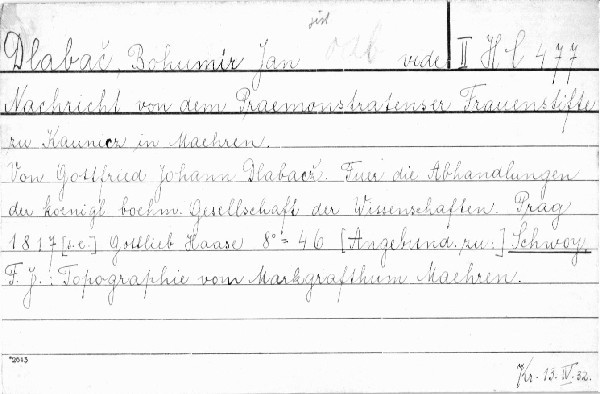 jist
Dlabač, Bohumír Jan odb vede II H l 477
Nachricht von dem Praemonstratenser Frauenstifte
zu Kaunicz in Maehren.
Von Gottfried Johann Dlabacž. Fuer die Abhandlungen
der koenigl boehm. Gesellschaft der Wissenschaften. Prag
1817 [s.e.] Gottlieb Haase 8°= 46 [Angebund. zu:] Schwoy,
F. J.: Topographie vom Markgrafthum Maehren.
*2013
Kr. 13. IV. 32.